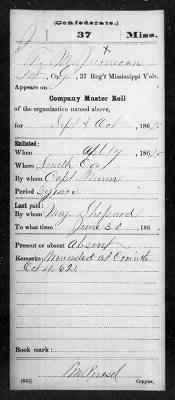 (Confederate.)
J 37 Miss.
T. M. J
Pvt, Co. , 37 Reg't Mississippi Vols.
Appears on
Company Muster Roll
of the organization named above,
for Sept & Oct, 1862.
Enlisted:
When Apl 17, 186
Where Smith Co.
By whom Capt.
Period 3 years
Last paid:
By whom Maj. Shepard
To what time June 30, 186
Present or absent Absent
Remarks: Wounded at Corinth
Oct 4, 62.
Book mark:
(642)
Copyist.